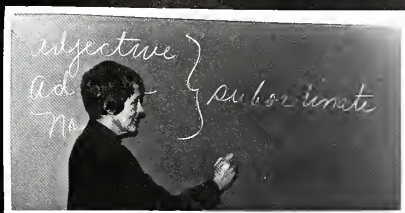 adjective
ad
No
subordinate